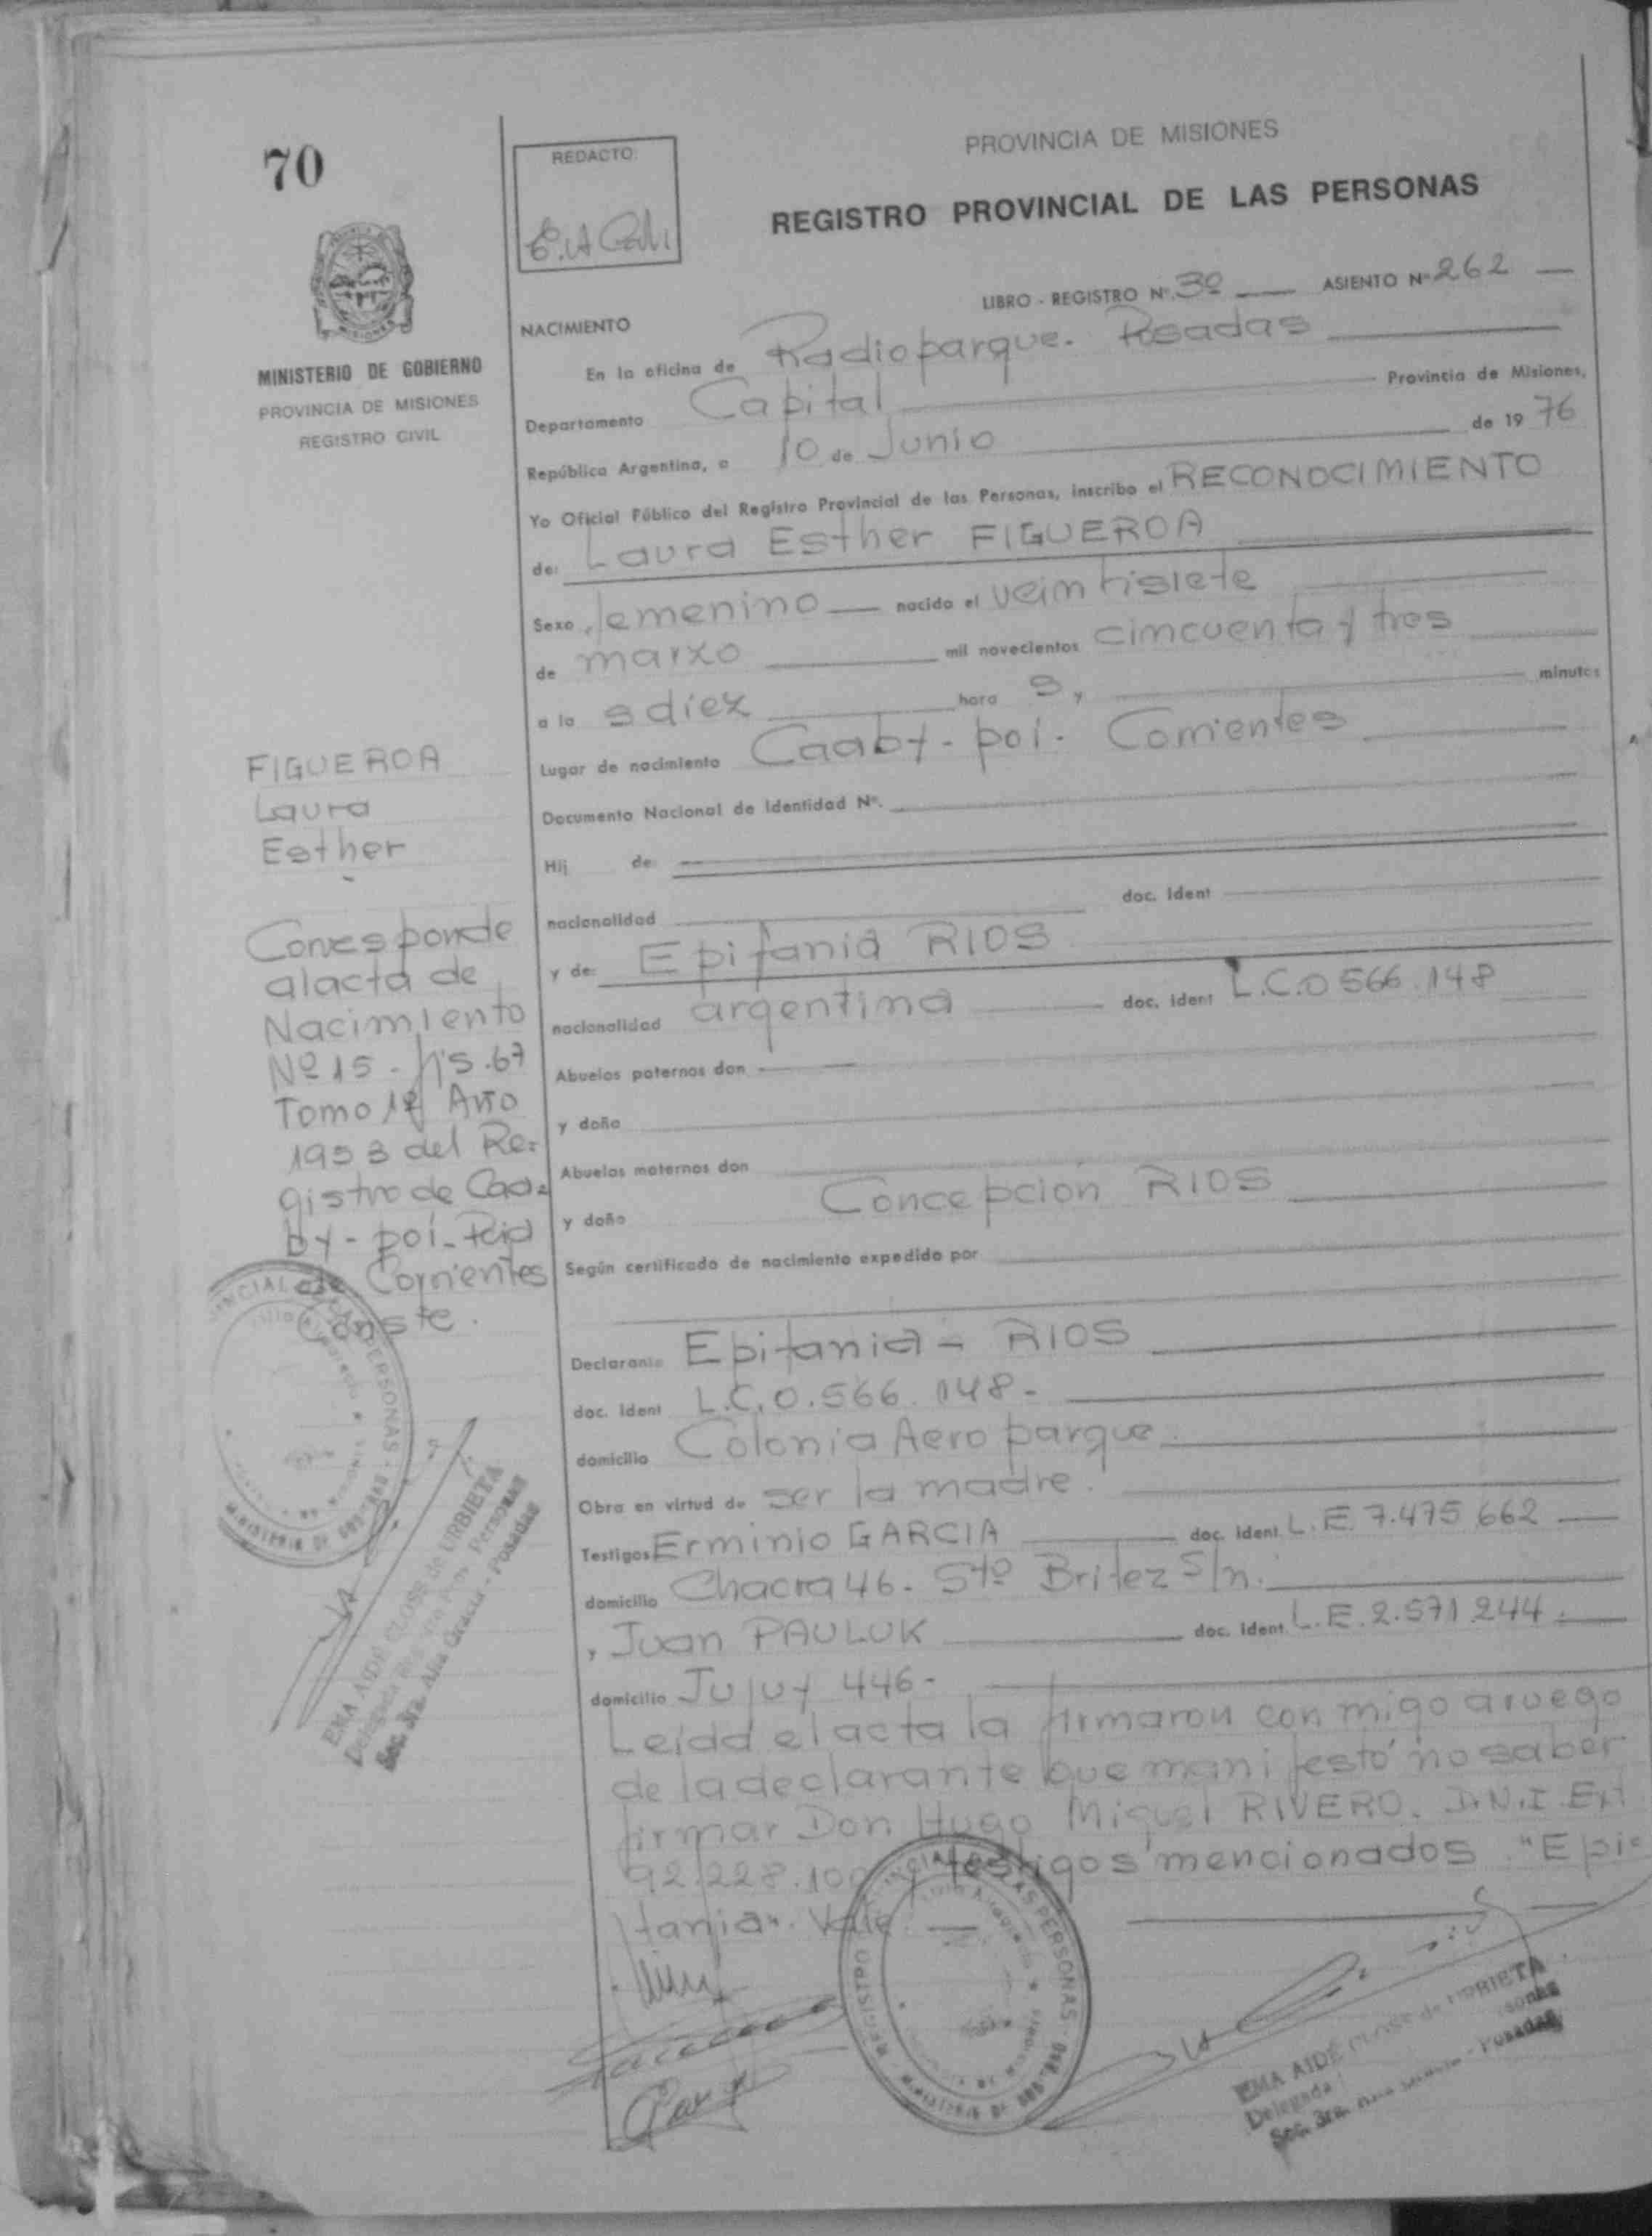 70
REDACTO:
PROVINCIA DE MISIONES
REGISTRO PROVINCIAL DE LAS PERSONAS
MISIONES
MINISTERIO DE GOBIERNO
PROVINCIA DE MISIONES
REGISTRO CIVIL
LIBRO - REGISTRO Nº. 3º ASIENTO Nº 262
NACIMIENTO
En la oficina de Radioparque. Posadas
Departamento Capital Provincia de Misiones,
República Argentina, a 10 de Junio de 19 76
Yo Oficial Público del Registro Provincial de las Personas, inscribo el RECONOCIMIENTO
de: Laura Esther FIGUEROA
Sexo femenino nacido el veintisiete
de marzo mil novecientos cincuenta y tres
a la s diez hora s y minutos
Lugar de nacimiento Caaby-poí- Corrientes
Documento Nacional de Identidad Nº.
Hij de
nacionalidad doc. ident
y de: Epifania RIOS
nacionalidad argentina doc. ident L.C.0566.148
Abuelos paternos don
y doña
Abuelos maternos don
y doña Concepción RIOS
Según certificado de nacimiento expedido por
Declarante Epifania - RIOS
doc. ident L.C.0.566.148-
domicilio Colonia Aeroparque
Obra en virtud de ser la madre.
Testigos Erminio GARCIA doc. ident. L.E. 7.475.662
domicilio Chacra 46- Stº Britez S/n.
y Juan PAULUK doc. ident L.E. 2.571.244.
domicilio Jujuy 446-
Leída el acta la firmaron conmigo a ruego
de la declarante que manifestó no saber
firmar Don Hugo Miguel RIVERO. D.N.I. Ext
92.228.100 y testigos mencionados "Epi=
fania". Vale.
FIGUEROA
Laura
Esther
Corresponde
al acta de
Nacimiento
Nº 15 - fs. 67
Tomo 1º Año
1953 del Re=
gistro de Caa=
by-poí- Pcia
de Corrientes
Conste.
EMA AIDE CLOSS de URBIETA
Delegada
Sec. 3ra. Alta Gracia - Posadas
EMA AIDE CLOSS de URBIETA
Delegada
Sec. 3ra. - Posadas